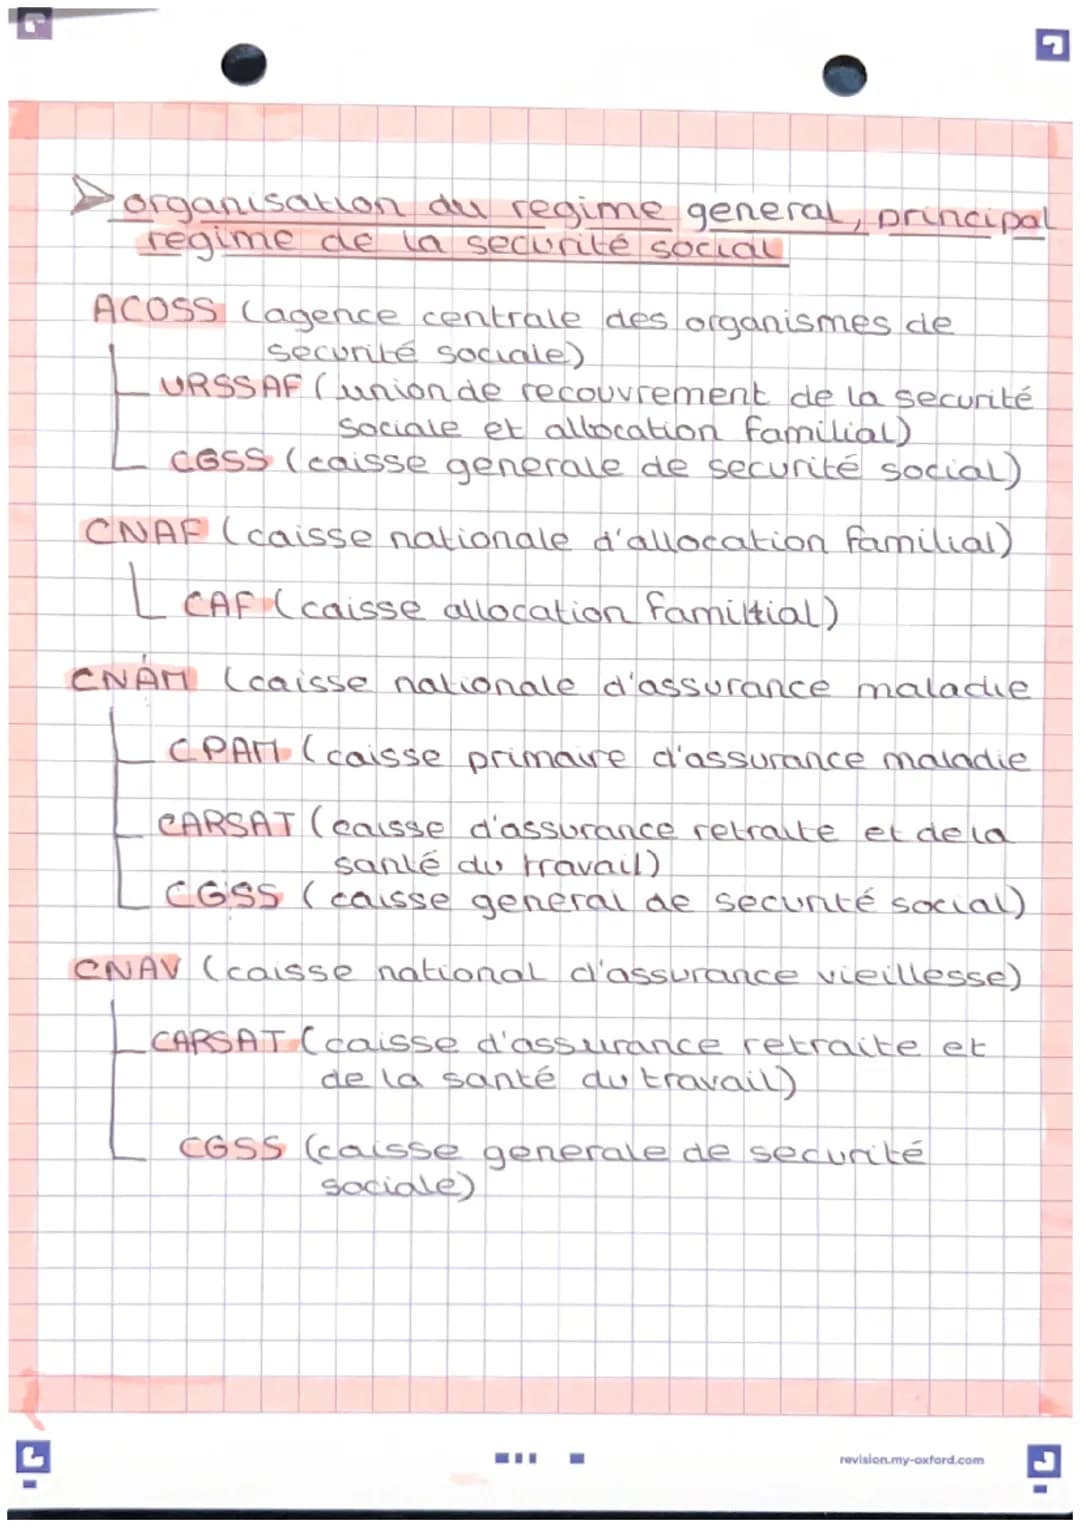 organisation du regime general, principal
regime de la securité social
ACOSS (agence centrale des organismes de
securité sociale)
URSSAF (union de recouvrement de la securité
sociale et allocation familial)
CGSS (caisse generale de securité social)
CNAF (caisse nationale d'allocation familial)
CAF (caisse allocation familial)
CNAM (caisse nationale d'assurance maladie
CPAM (caisse primaire d'assurance maladie
CARSAT (caisse d'assurance retraite et de la
santé du travail)
CGSS (caisse general de securité social)
CNAV (caisse national d'assurance vieillesse)
CARSAT (caisse d'assurance retraite et
de la santé du travail)
CGSS (caisse generale de securité
sociale)
revision.my-oxford.com